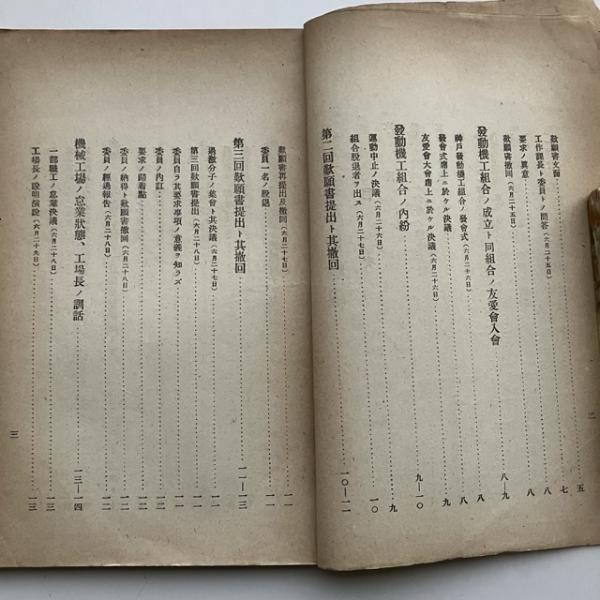 歎願書文面 五
工作課長ト委員トノ問答(六月二十五日) 七
要求ノ眞意 八
歎願書撤回(六月二十五日) 八
發動機工組合ノ成立ト同組合ノ友愛會入會 八―九
神戸發動機工組合ノ發會式(六月二十六日) 八
發會式席上ニ於ケル決議 九
友愛會大會席上ニ於ケル決議(六月二十六日) 九
發動機工組合ノ內紛 九―一〇
運動中止ノ決議(六月二十七日) 一〇
組合脫退者ヲ出ス(六月二十七日)
第二回歎願書提出ト其撤回 一〇―一一
二
歎願書再提出及撤回(六月二十七日) 一一
委員一名ノ脫退 一一
第三回歎願書提出ト其撤回 一一―一三
過激分子ノ集會ト其決議(六月二十七日) 一一
第三回歎願書提出(六月二十八日) 一一
委員自ラ其要求事項ノ意義ヲ知ラズ 一一
委員ノ內訌 一二
要求ノ歸着點 一二
委員ノ納得ト歎願書撤回(六月二十八日) 一二
委員ノ經過報告(六月二十八日) 一二
機械工場ノ怠業狀態、工場長ノ訓話 一三―一四
一部職工ノ怠業決議(六月二十八日) 一三
工場長ノ說明演說(六月二十九日) 一三
三